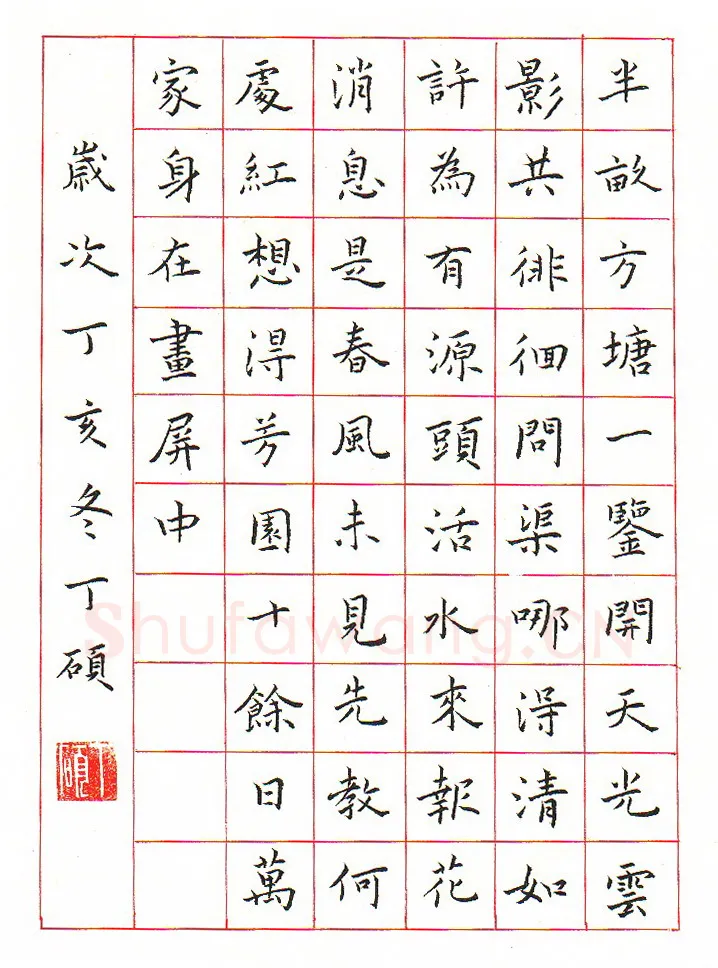 半畝方塘一鑒開天光雲
影共徘徊問渠哪淂清如
許為有源頭活水來報花
消息是春風未見先教何
處紅想淂芳園十餘日萬
家身在畫屏中
歲次丁亥冬丁碩
丁碩
Shufawang.CN